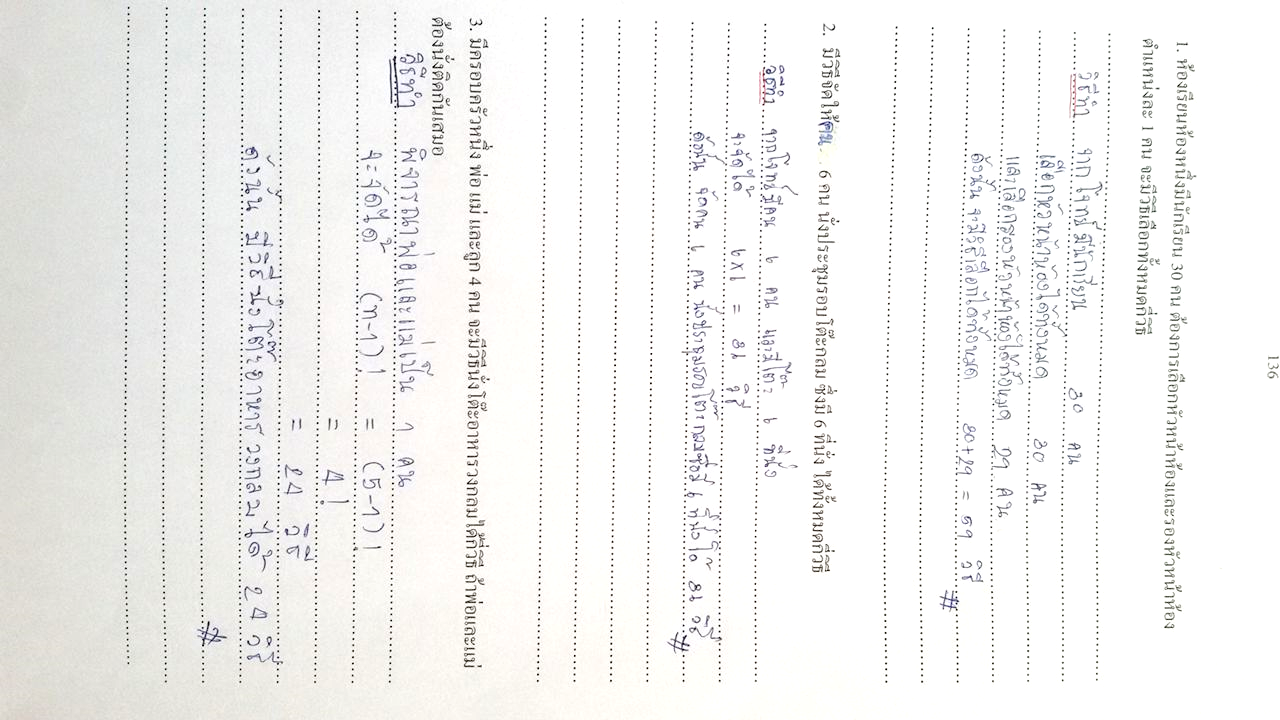 136
1. ห้องเรียนห้องหนึ่งมีนักเรียน 30 คน ต้องการเลือกหัวหน้าห้องและรองหัวหน้าห้อง
ตำแหน่งละ 1 คน จะมีวิธีเลือกทั้งหมดกี่วิธี
วิธีทำ จากโจทย์ มีนักเรียน 30 คน
เลือกหัวหน้าห้องได้ทั้งหมด 30 คน
และเลือกรองหัวหน้าห้องได้ทั้งหมด 29 คน
ดังนั้น จะมีวิธีเลือกได้ทั้งหมด 30+29 = 59 วิธี #
2. มีวิธีจัดให้คน 6 คน นั่งประชุมรอบโต๊ะกลม ซึ่งมี 6 ที่นั่ง ได้ทั้งหมดกี่วิธี
วิธีทำ จากโจทย์มีคน 6 คน และมีโต๊ะ 6 ที่นั่ง
จะจัดได้ 6x6 = 36 วิธี
ดังนั้น จัดคน 6 คน นั่งประชุมรอบโต๊ะกลมซึ่งมี 6 ที่นั่งได้ 36 วิธี #
3. มีครอบครัวหนึ่ง พ่อ แม่ และลูก 4 คน จะมีวิธีนั่งโต๊ะอาหารวงกลมได้กี่วิธี ถ้าพ่อและแม่
ต้องนั่งติดกันเสมอ
วิธีทำ พิจารณาพ่อและแม่เป็น 1 คน
จะจัดได้ (n-1)! = (5-1)!
= 4!
= 24 วิธี
ดังนั้น มีวิธีนั่งโต๊ะอาหารวงกลมได้ 24 วิธี #